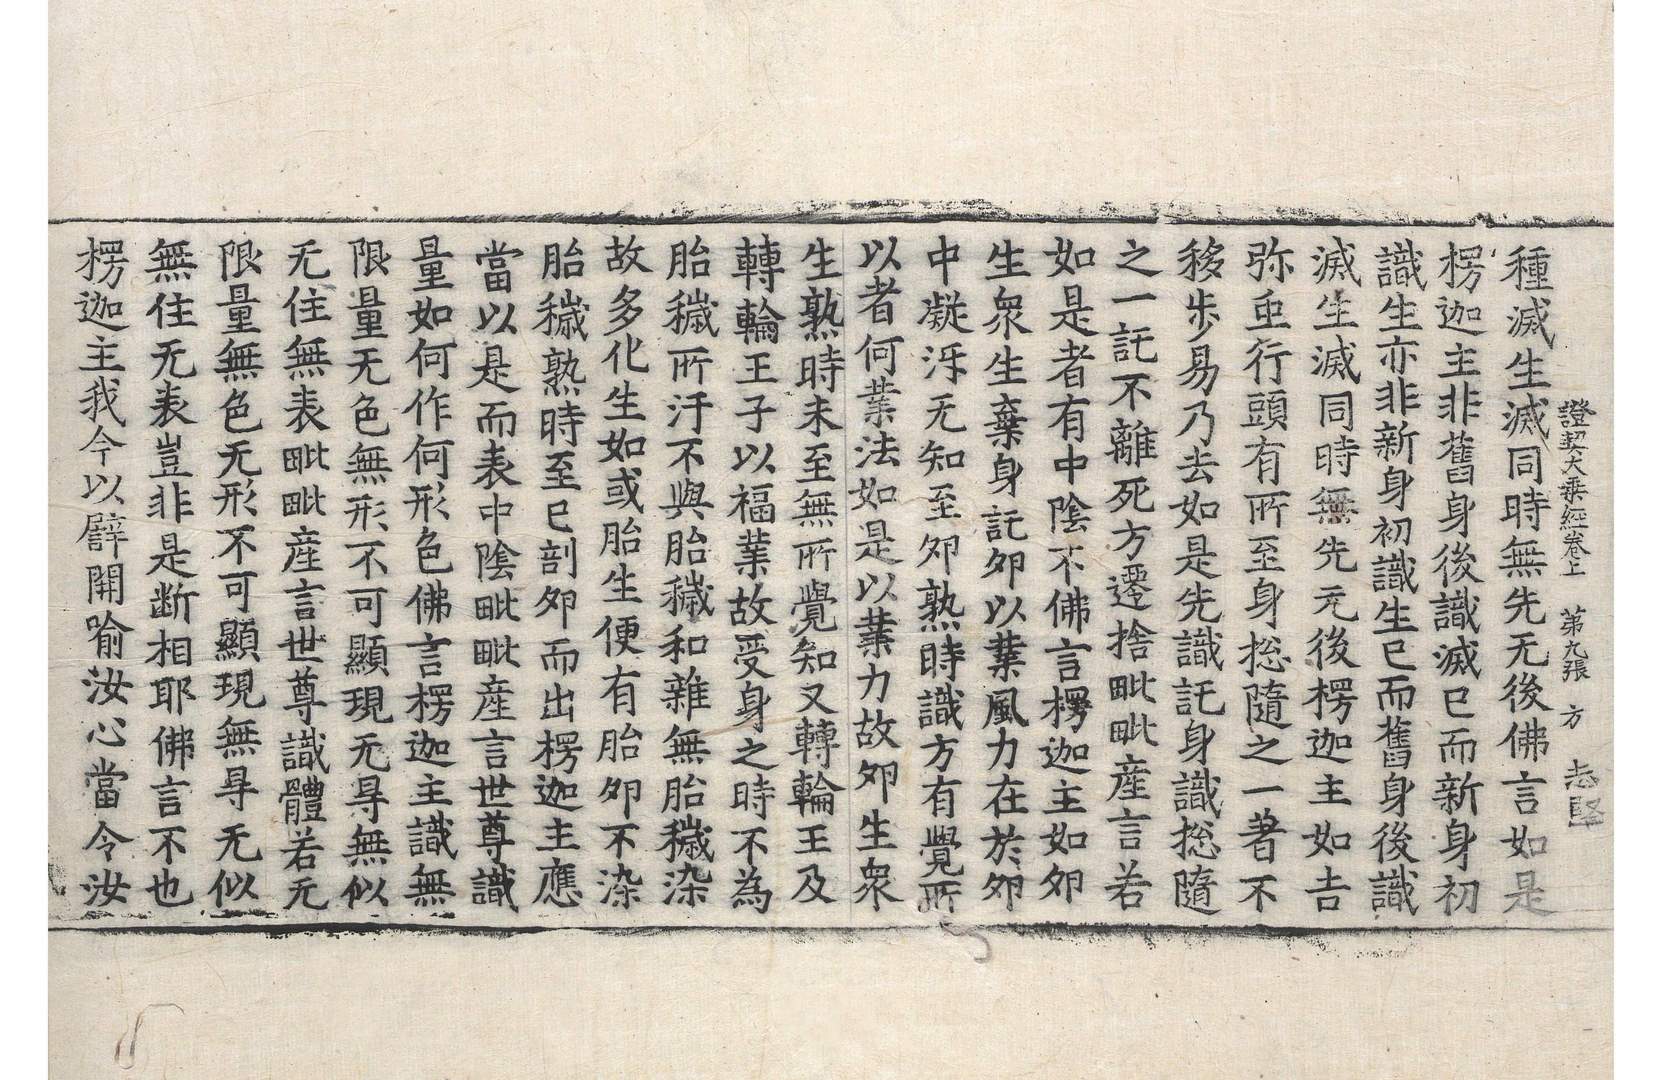 證契大乘經卷上　第九張　方　志堅
種滅生滅同時無先无後佛言如是
楞迦主非舊身後識滅已而新身初
識生亦非新身初識生已而舊身後識
滅生滅同時無先无後楞迦主如吉
弥虫行頭有所至身捴隨之一著不
移步易乃去如是先識託身識捴隨
之一託不離死方遷捨毗毗產言若
如是者有中陰不佛言楞迦主如夘
生衆生棄身託夘以業風力在於夘
中凝泘无知至夘熟時識方有覺所
以者何業法如是以業力故夘生衆
生熟時未至無所覺知又轉輪王及
轉輪王子以福業故受身之時不為
胎穢所汙不與胎穢和雜無胎穢染
故多化生如或胎生便有胎夘不染
胎穢熟時至已剖夘而出楞迦主應
當以是而表中陰毗毗產言世尊識
量如何作何形色佛言楞迦主識無
限量无色無形不可顯現无㝵無似
无住無表毗毗產言世尊識體若无
限量無色无形不可顯現無㝵无似
無住无表豈非是断相耶佛言不也
楞迦主我今以譬開喻汝心當令汝